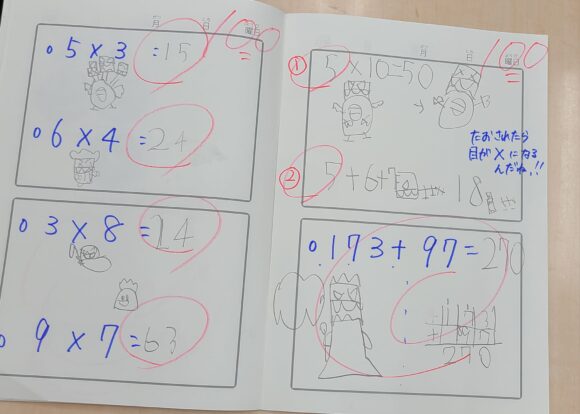 月 日 曜日
100
5 × 3 = 15
6 × 4 = 24
3 × 8 = 24
9 × 7 = 63
月 日 曜日
100
① 5 × 10 = 50
たおされたら
目が × になる
んだね!!
② 5 + 6 + 7 18
173 + 97 = 270
173
+ 97
270